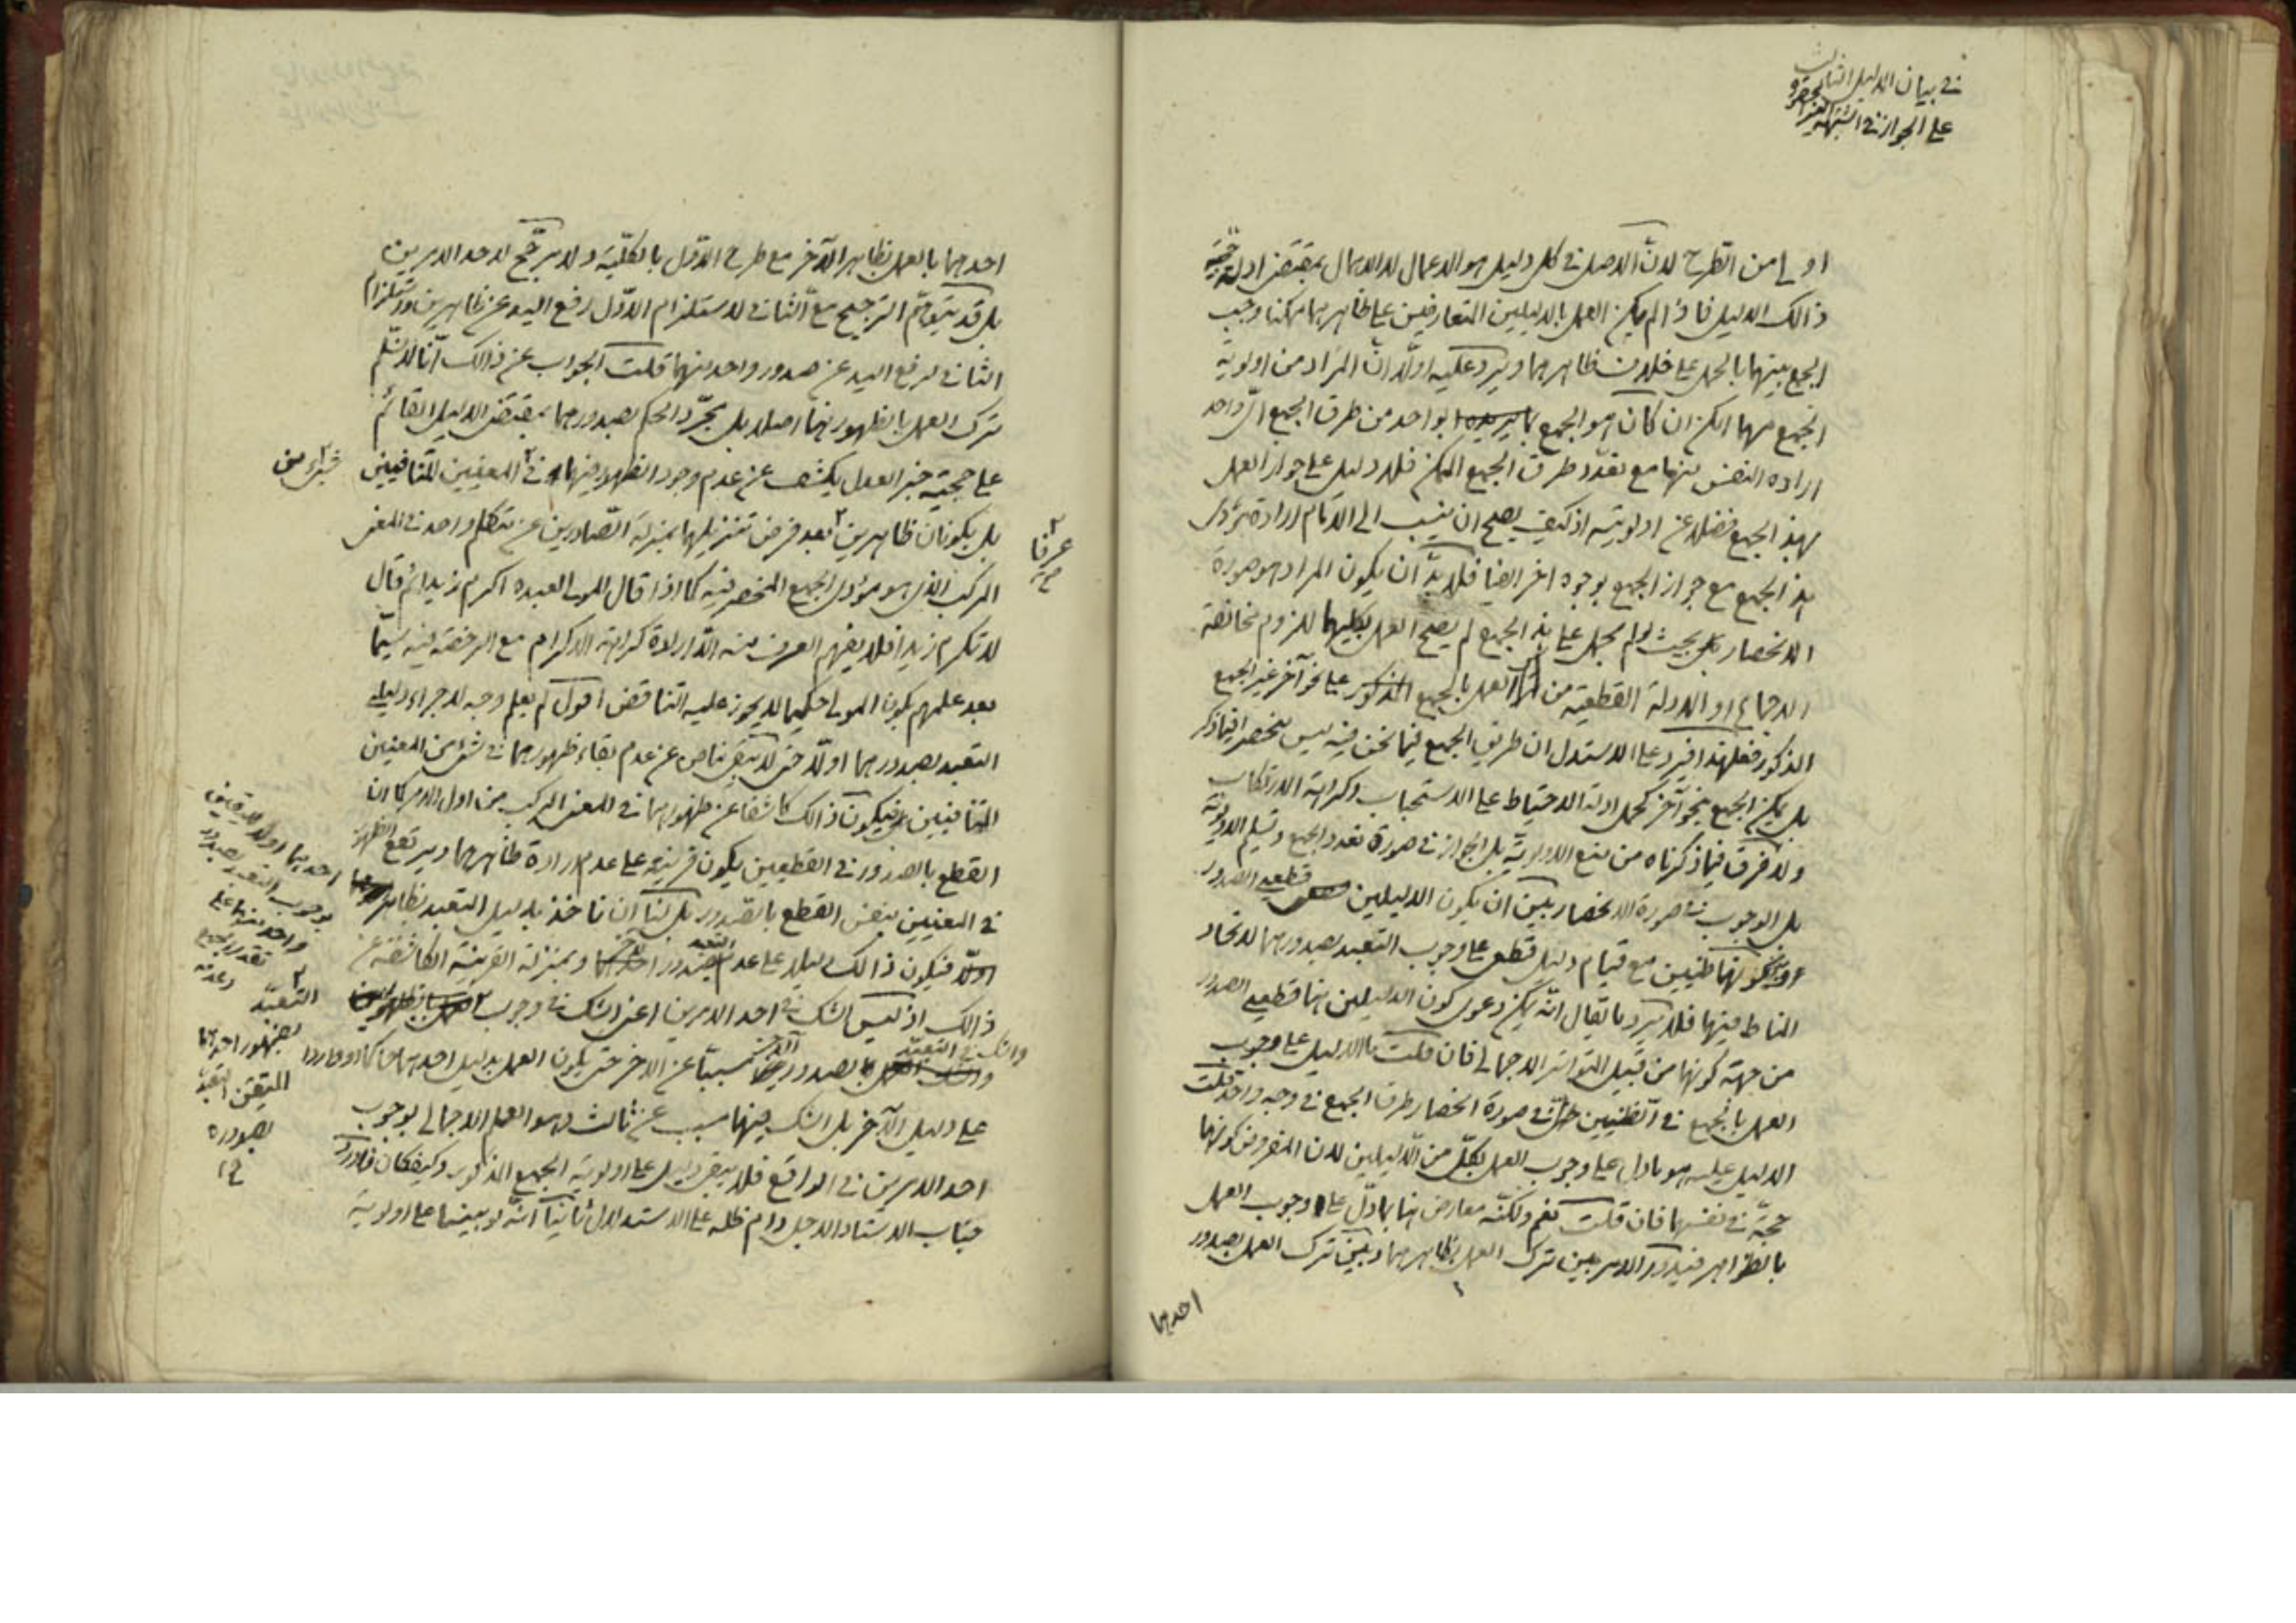 في بيان الدليل الثالث
على الجواز في الشبهة الغير المحصورة
اولى من الطرح لان الاصل في كل دليل هو الاعمال لا الاهمال بمقتضى ادلة حجية
ذالك الدليل فاذا لم يمكن العمل بالدليلين المتعارضين على ظاهرهما مهما امكنا وجب
الجمع بينهما بالحمل على خلاف ظاهرهما ويرد عليه اولا ان المراد من اولوية
الجمع مهما امكن ان كان هو الجمع بواحد من طرق الجمع الى واحد
اراده النفس منها مع تعدد طرق الجمع الممكن فلا دليل على جواز العمل
بهذا الجمع فضلا عن اولويته اذ كيف يصح ان ينسب الى الامام ارادة مؤدى
هذا الجمع مع جواز الجمع بوجوه اخر ايضا فلا بد ان يكون المراد هو صورة
الانحصار بحيث لو لم يحمل على هذا الجمع لم يصح العمل بكليهما للزوم مخالفة
الاجماع او الادلة القطعية من العمل بالجمع على نحو آخر غير الجمع
المذكور فعلى هذا فيرد على المستدل ان طريق الجمع فيما نحن فيه ليس منحصرا فيما ذكر
بل يمكن الجمع بنحو آخر كحمل ادلة الاحتياط على الاستحباب وكراهة الارتكاب
ولا فرق فيما ذكرناه من منع الاولوية بل الجواز في صورة تعدد الجمع وتسليم الاولوية
بل الوجوب في صورة الانحصار بين ان يكون الدليلين قطعيي الصدور
او يكونا ظنيين مع قيام دليل قطعي على وجوب التعبد بصدورهما لاتحاد
المناط فيهما فلا يرد ما يقال انه يمكن دعوى كون الدليلين هنا قطعيي الصدور
من جهة كونهما من قبيل التواتر الاجمالي فان قلت ما الدليل على وجوب
العمل بالجمع في الظنيين حتى في صورة انحصار طرق الجمع في وجه واحد قلت
الدليل عليه هو ما دل على وجوب العمل بكل من الدليلين لان المفروض كونهما
حجة في نفسهما فان قلت نعم ولكنه معارض هنا بما دل على وجوب العمل
بالظواهر فيدور الامر بين ترك العمل بظاهرهما وبين ترك العمل بصدور
احدهما
احدهما بالعمل بظاهر الآخر مع طرح الاول بالكلية ولا مرجح لاحد الامرين
بل قد يتوهم الترجيح مع الثاني لاستلزام الاول رفع اليد عن ظاهرين واستلزام
الثاني لرفع اليد عن صدور واحد منهما قلت الجواب عن ذالك انا لا نسلم
ترك العمل بالظهور هنا اصلا بل بمجرد الحكم بصدورهما بمقتضى الدليل القائم
على حجية خبر العدل يكشف عن عدم وجود الظهور فيهما في المعنيين المتنافيين
شيء من
بل يكونان ظاهرين بعد فرض تنزيلهما بمنزلة الصادرين عن متكلم واحد في المعنى
عرفا
صح
المركب الذي هو مؤدى الجمع المنحصر فيه كما اذا قال المولى لعبده اكرم زيدا ثم قال
لا تكرم زيدا فلا يفهم العرف منه الا ارادة كراهة الاكرام مع الرخصة فيه سيما
بعد علمهم بكون المولى حكيما لا يجوز عليه التناقض اقول لم يعلم وجه لاجراء دليل
التعبد بصدورهما اولا حتى لا يبقى مناص عن عدم بقاء ظهورهما في شيء من المعنيين
المتنافيين فيكون ذالك كاشفا عن ظهورهما في المعنى المركب من اول الامر كما ان
القطع بالصدور في القطعيين يكون قرينة على عدم ارادة ظاهرهما ويرتفع الظهور
في المعنيين بنفس القطع بالصدور بل لنا ان ناخذ بدليل التعبد بظاهر
اولا فيكون ذالك دليلا على عدم التعبد بصدور الآخر وبمنزلة القرينة الكاشفة عن
ذالك اذ ليس الشك في احد الامرين اعني الشك في وجوب
والشك في التعبد بصدور الآخر مسببا عن الاخر حتى يكون العمل بدليل احدهما حاكما او واردا
على دليل الآخر بل الشك فيهما مسبب عن ثالث وهو العلم الاجمالي بوجوب
احد الامرين في الواقع فلا يبقى دليل على اولوية الجمع المذكور وكيف كان فاورد
جناب الاستاد الاجل دام ظله على الاستدلال ثانيا انه لو بنينا على اولوية
احدهما اولا لليقين
بوجوب التعبد بصدور
واحد منهما على
تقدير الجمع
وعدمه
التعبد
بظهور احدهما
المتيقن التعبد
بصدوره
صح